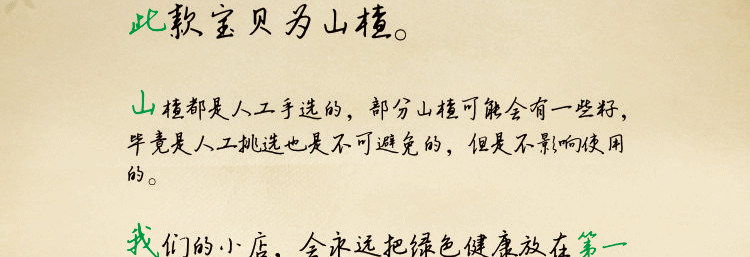 此款宝贝为山楂。
山楂都是人工手选的，部分山楂可能会有一些籽，
毕竟是人工挑选也是不可避免的，但是不影响使用
的。
我们的小店，会永远把绿色健康放在第一